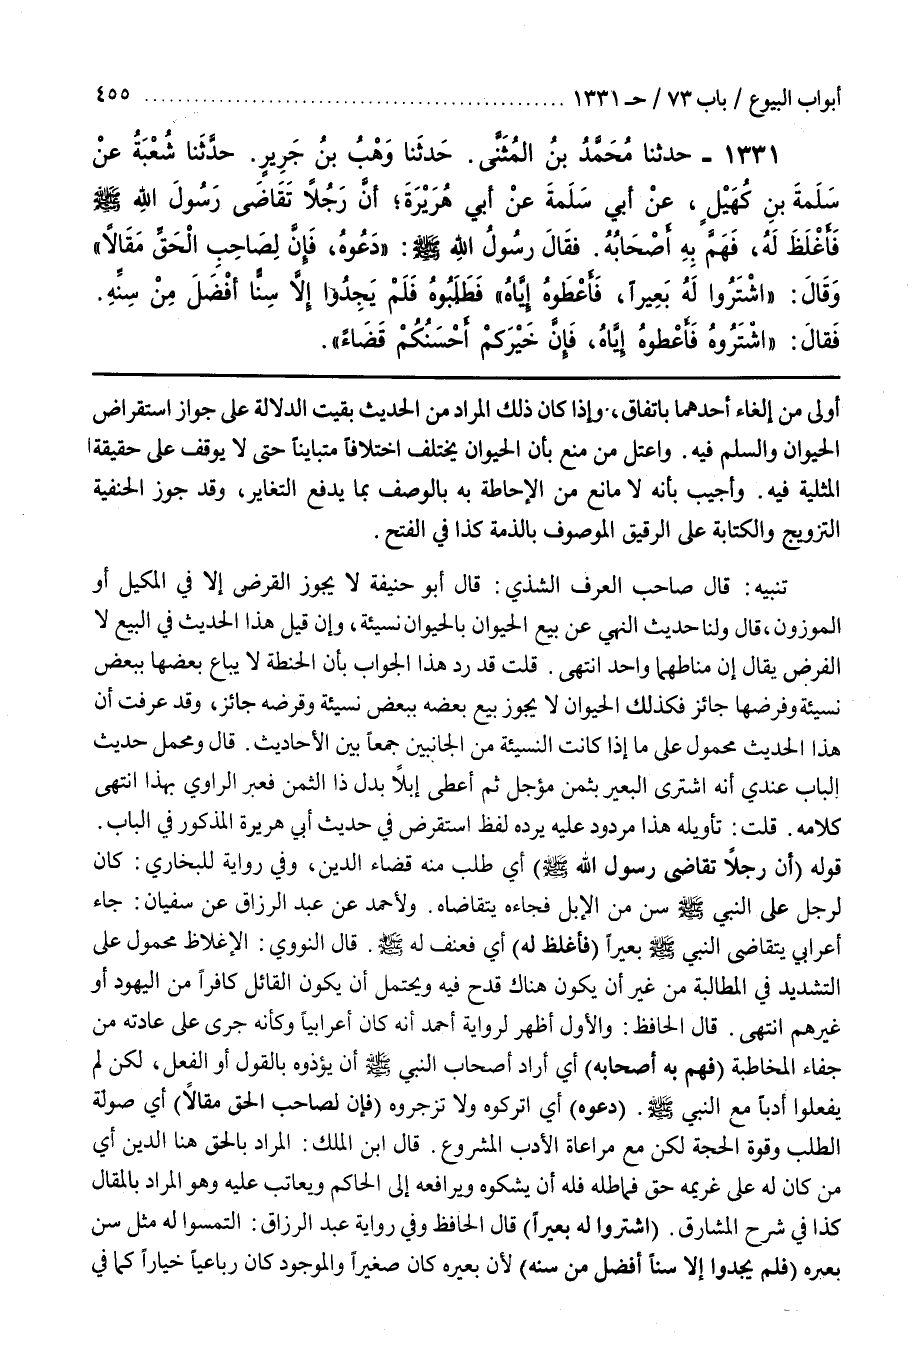 أبواب البيوع / باب ٧٣ / حـ ١٣٣١ ................................................... ٤٥٥
١٣٣١ ـ حدثنا مُحَمَّدُ بنُ المُثَنَّى. حَدثَنا وَهْبُ بنُ جَرِيرٍ. حدَّثَنا شُعْبَةُ عنْ
سَلَمةَ بنِ كُهَيْلٍ، عنْ أبي سَلَمةَ عنْ أبي هُرَيْرَةَ؛ أنَّ رَجُلاً تَقَاضَى رَسُولَ اللهِ ﷺ
فَأَغْلَظَ لَهُ، فَهَمَّ بِهِ أَصْحَابُهُ. فقَالَ رسُولُ اللهِ ﷺ: «دَعُوهُ، فَإِنَّ لِصَاحِبِ الْحَقِّ مَقَالاً»
وَقَالَ: «اشْتَرُوا لَهُ بَعِيراً، فَأَعْطُوهُ إِيَّاهُ» فَطَلَبُوهُ فَلَمْ يَجِدُوا إِلَّا سِنًّا أفْضَلَ مِنْ سِنِّهِ.
فَقالَ: «اشْتَرُوهُ فَأَعْطوهُ إيَّاهُ، فَإِنَّ خَيْرَكمْ أَحْسَنُكُمْ قَضَاءً».
أولى من إلغاء أحدهما باتفاق، وإذا كان ذلك المراد من الحديث بقيت الدلالة على جواز استقراض
الحيوان والسلم فيه. واعتل من منع بأن الحيوان يختلف اختلافاً متبايناً حتى لا يوقف على حقيقة
المثلية فيه. وأجيب بأنه لا مانع من الإحاطة به بالوصف بما يدفع التغاير، وقد جوز الحنفية
التزويج والكتابة على الرقيق الموصوف بالذمة كذا في الفتح.
تنبيه: قال صاحب العرف الشذي: قال أبو حنيفة لا يجوز القرض إلا في المكيل أو
الموزون، قال ولنا حديث النهي عن بيع الحيوان بالحيوان نسيئة، وإن قيل هذا الحديث في البيع لا
القرض يقال إن مناطهما واحد انتهى. قلت قد رد هذا الجواب بأن الحنطة لا يباع بعضها ببعض
نسيئة وقرضها جائز فكذلك الحيوان لا يجوز بيع بعضه ببعض نسيئة وقرضه جائز، وقد عرفت أن
هذا الحديث محمول على ما إذا كانت النسيئة من الجانبين جمعاً بين الأحاديث. قال ومحمل حديث
الباب عندي أنه اشترى البعير بثمن مؤجل ثم أعطى إبلاً بدل ذا الثمن فعبر الراوي بهذا انتهى
كلامه. قلت: تأويله هذا مردود عليه يرده لفظ استقرض في حديث أبي هريرة المذكور في الباب.
قوله (أن رجلاً تقاضى رسول الله ﷺ) أي طلب منه قضاء الدين، وفي رواية للبخاري: كان
لرجل على النبي ﷺ سن من الإبل فجاءه يتقاضاه. ولأحمد عن عبد الرزاق عن سفيان: جاء
أعرابي يتقاضى النبي ﷺ بعيراً (فأغلظ له) أي فعنف له ﷺ. قال النووي: الإغلاظ محمول على
التشديد في المطالبة من غير أن يكون هناك قدح فيه ويحتمل أن يكون القائل كافراً من اليهود أو
غيرهم انتهى. قال الحافظ: والأول أظهر لرواية أحمد أنه كان أعرابياً وكأنه جرى على عادته من
جفاء المخاطبة (فهم به أصحابه) أي أراد أصحاب النبي ﷺ أن يؤذوه بالقول أو الفعل، لكن لم
يفعلوا أدباً مع النبي ﷺ. (دعوه) أي اتركوه ولا تزجروه (فإن لصاحب الحق مقالاً) أي صولة
الطلب وقوة الحجة لكن مع مراعاة الأدب المشروع. قال ابن الملك: المراد بالحق هنا الدين أي
من كان له على غريمه حق فماطله فله أن يشكوه ويرافعه إلى الحاكم ويعاتب عليه وهو المراد بالمقال
كذا في شرح المشارق. (اشتروا له بعيراً) قال الحافظ وفي رواية عبد الرزاق: التمسوا له مثل سن
بعيره (فلم يجدوا إلا سناً أفضل من سنه) لأن بعيره كان صغيراً والموجود كان رباعياً خياراً كما في